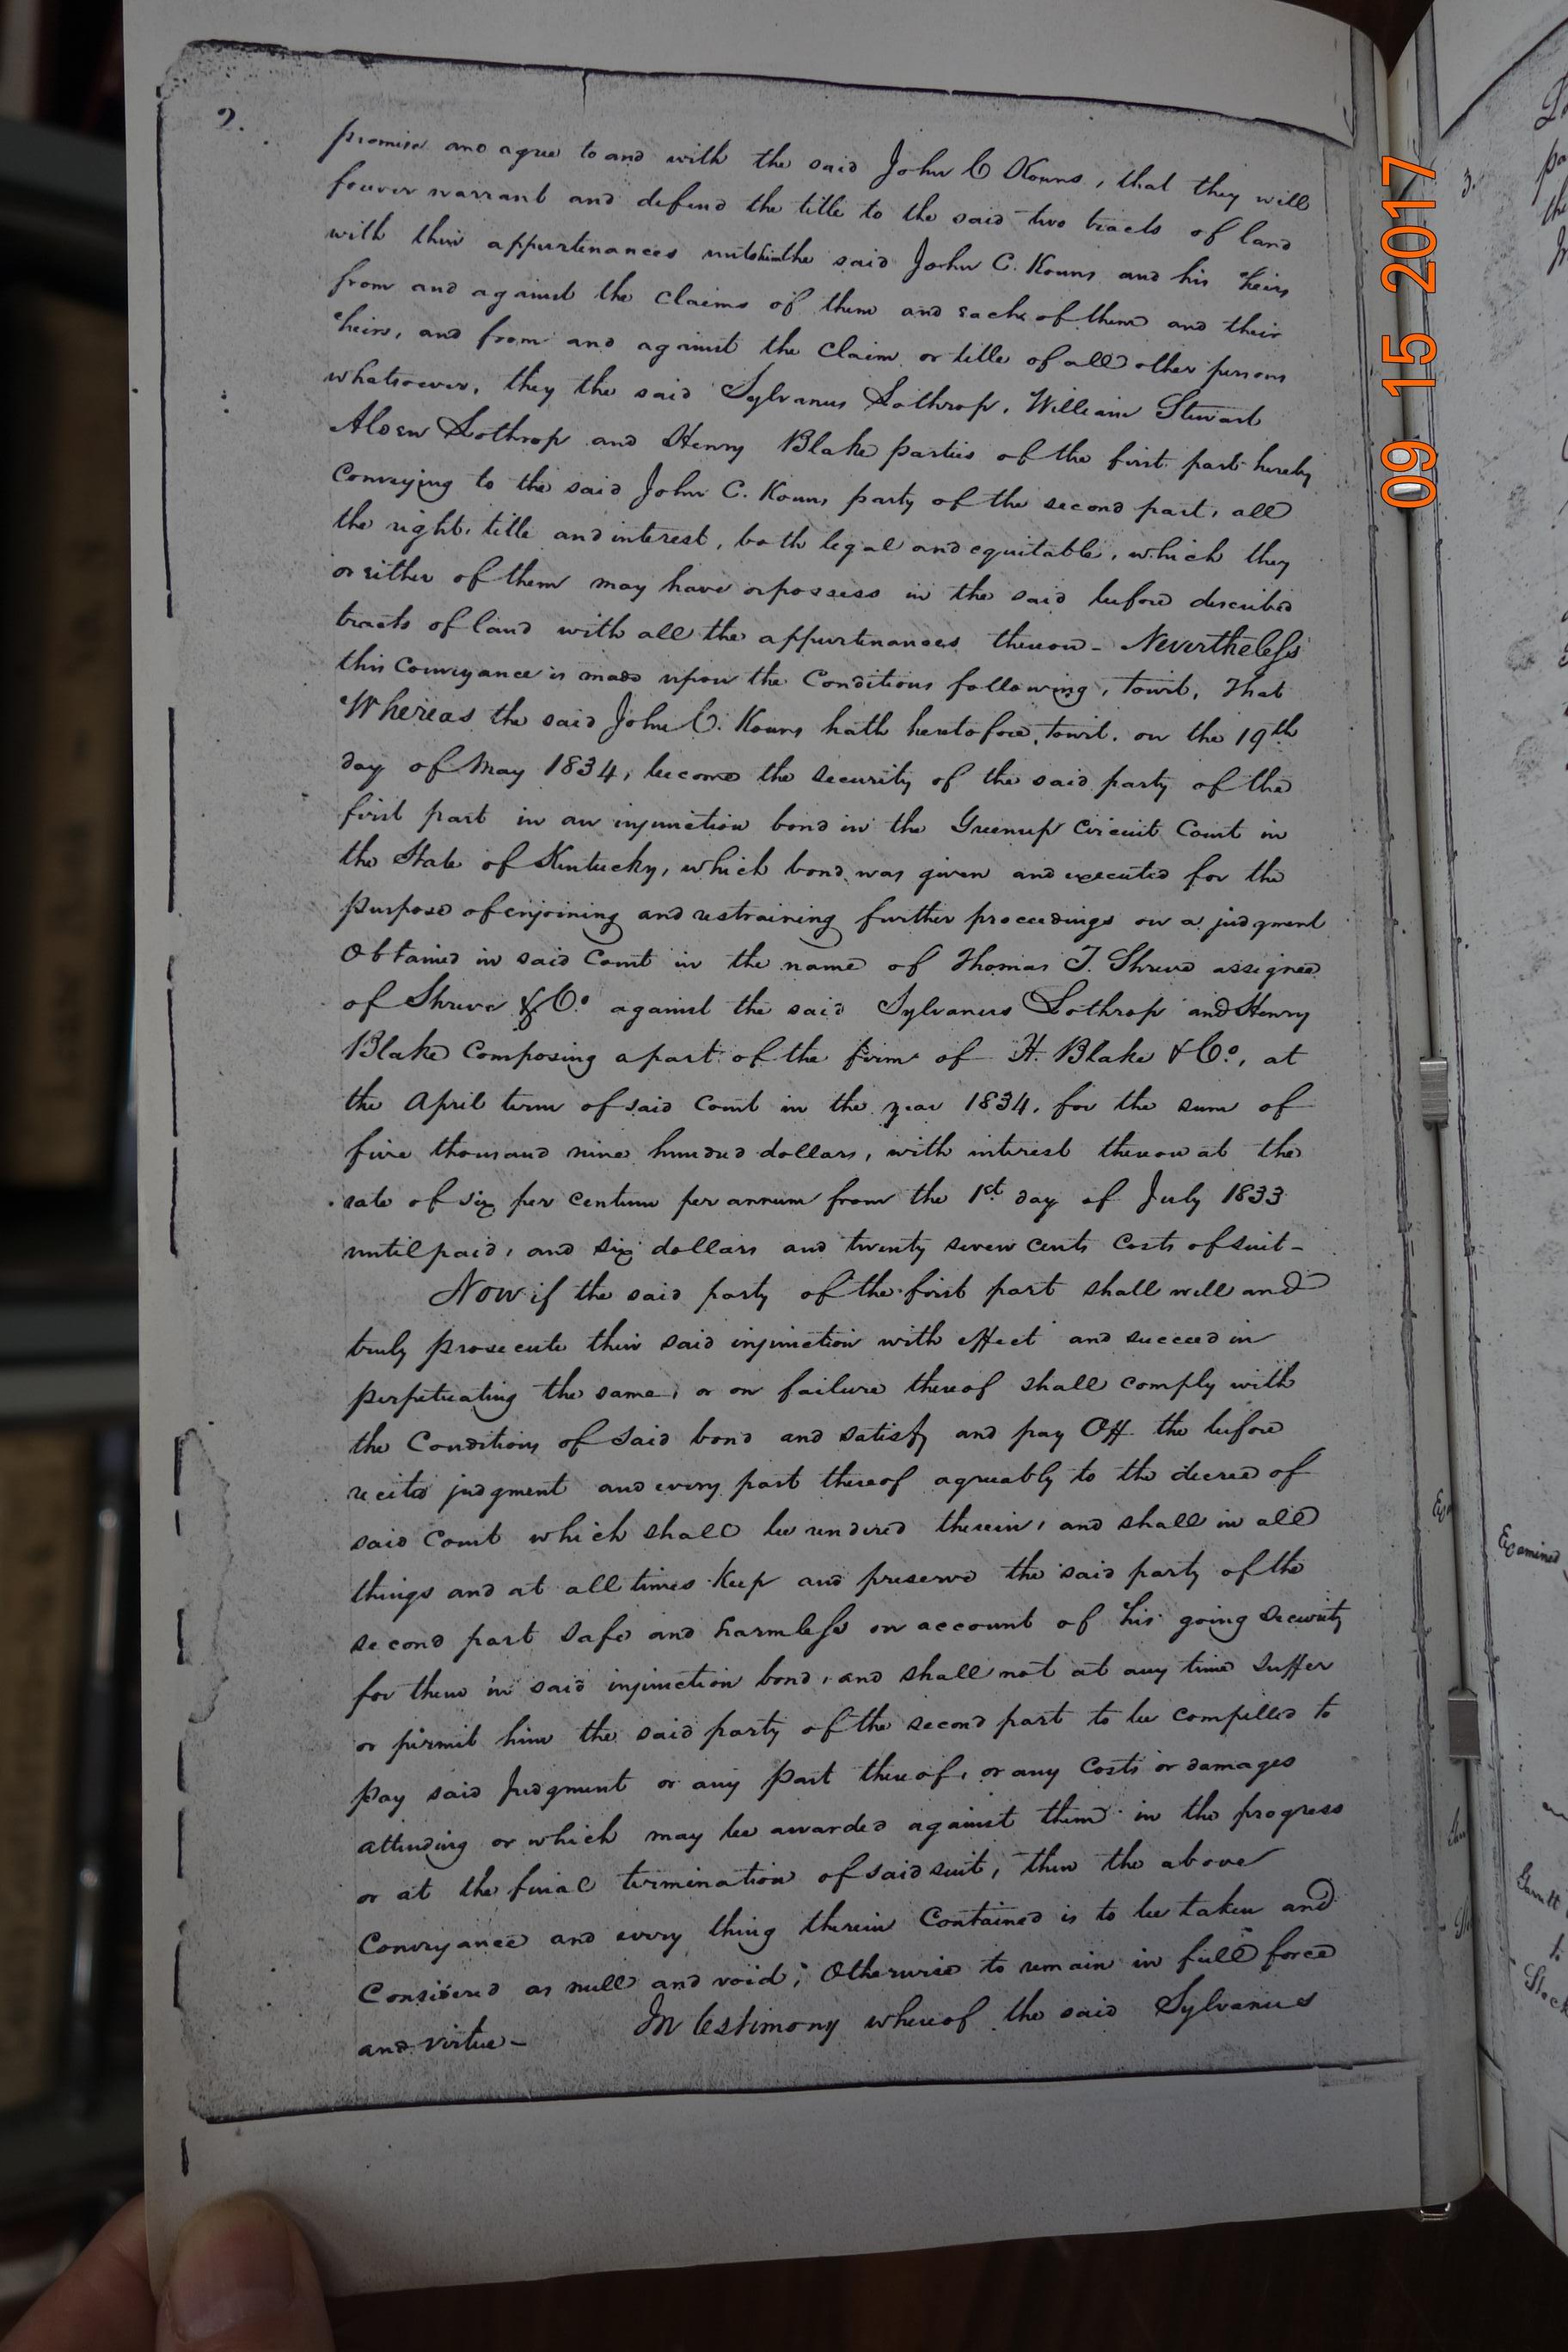 2.
promise and agree to and with the said John C Kouns, that they will
forever warrant and defend the title to the said two tracts of land
with their appurtenances unto him the said John C. Kouns and his heirs
from and against the claims of them and each of them and their
heirs, and from and against the claim or title of all other persons
whatsoever, they the said Sylvanus Lothrop, William Stewart
Alden Lothrop and Henry Blake parties of the first part hereby
Conveying to the said John C. Kouns party of the second part, all
the right, title and interest, both legal and equitable, which they
or either of them may have or possess in the said before described
tracts of land with all the appurtenances thereon - Nevertheless
this Conveyance is made upon the Conditions following, towit, That
Whereas the said John C. Kouns hath heretofore, towit, on the 19th
day of May 1834, become the security of the said party of the
first part in an injunction bond in the Greenup Circuit Court in
the State of Kentucky, which bond was given and executed for the
purpose of enjoining and restraining further proceedings on a judgment
Obtained in said Court in the name of Thomas T. Shreve assignee
of Shreve & Co. against the said Sylvanus Lothrop and Henry
Blake Composing a part of the firm of H. Blake & Co., at
the April term of said Court in the year 1834, for the sum of
five thousand nine hundred dollars, with interest thereon at the
rate of six per Centum per annum from the 1st day of July 1833
until paid, and six dollars and twenty seven cents Costs of suit -
Now if the said party of the first part shall well and
truly prosecute their said injunction with effect and succeed in
perpetuating the same, or on failure thereof shall comply with
the Conditions of said bond and satisfy and pay Off the before
recited judgment and every part thereof agreeably to the decree of
said Court which shall be rendered therein, and shall in all
things and at all times Keep and preserve the said party of the
second part safe and harmless on account of his going security
for them in said injunction bond, and shall not at any time suffer
or permit him the said party of the second part to be compelled to
pay said Judgment or any part thereof, or any Costs or damages
attending or which may be awarded against them in the progress
or at the final termination of said suit, then the above
Conveyance and every thing therein Contained is to be taken and
Considered as null and void; Otherwise to remain in full force
and virtue - In testimony whereof the said Sylvanus
09 15 2017
3.
Examined